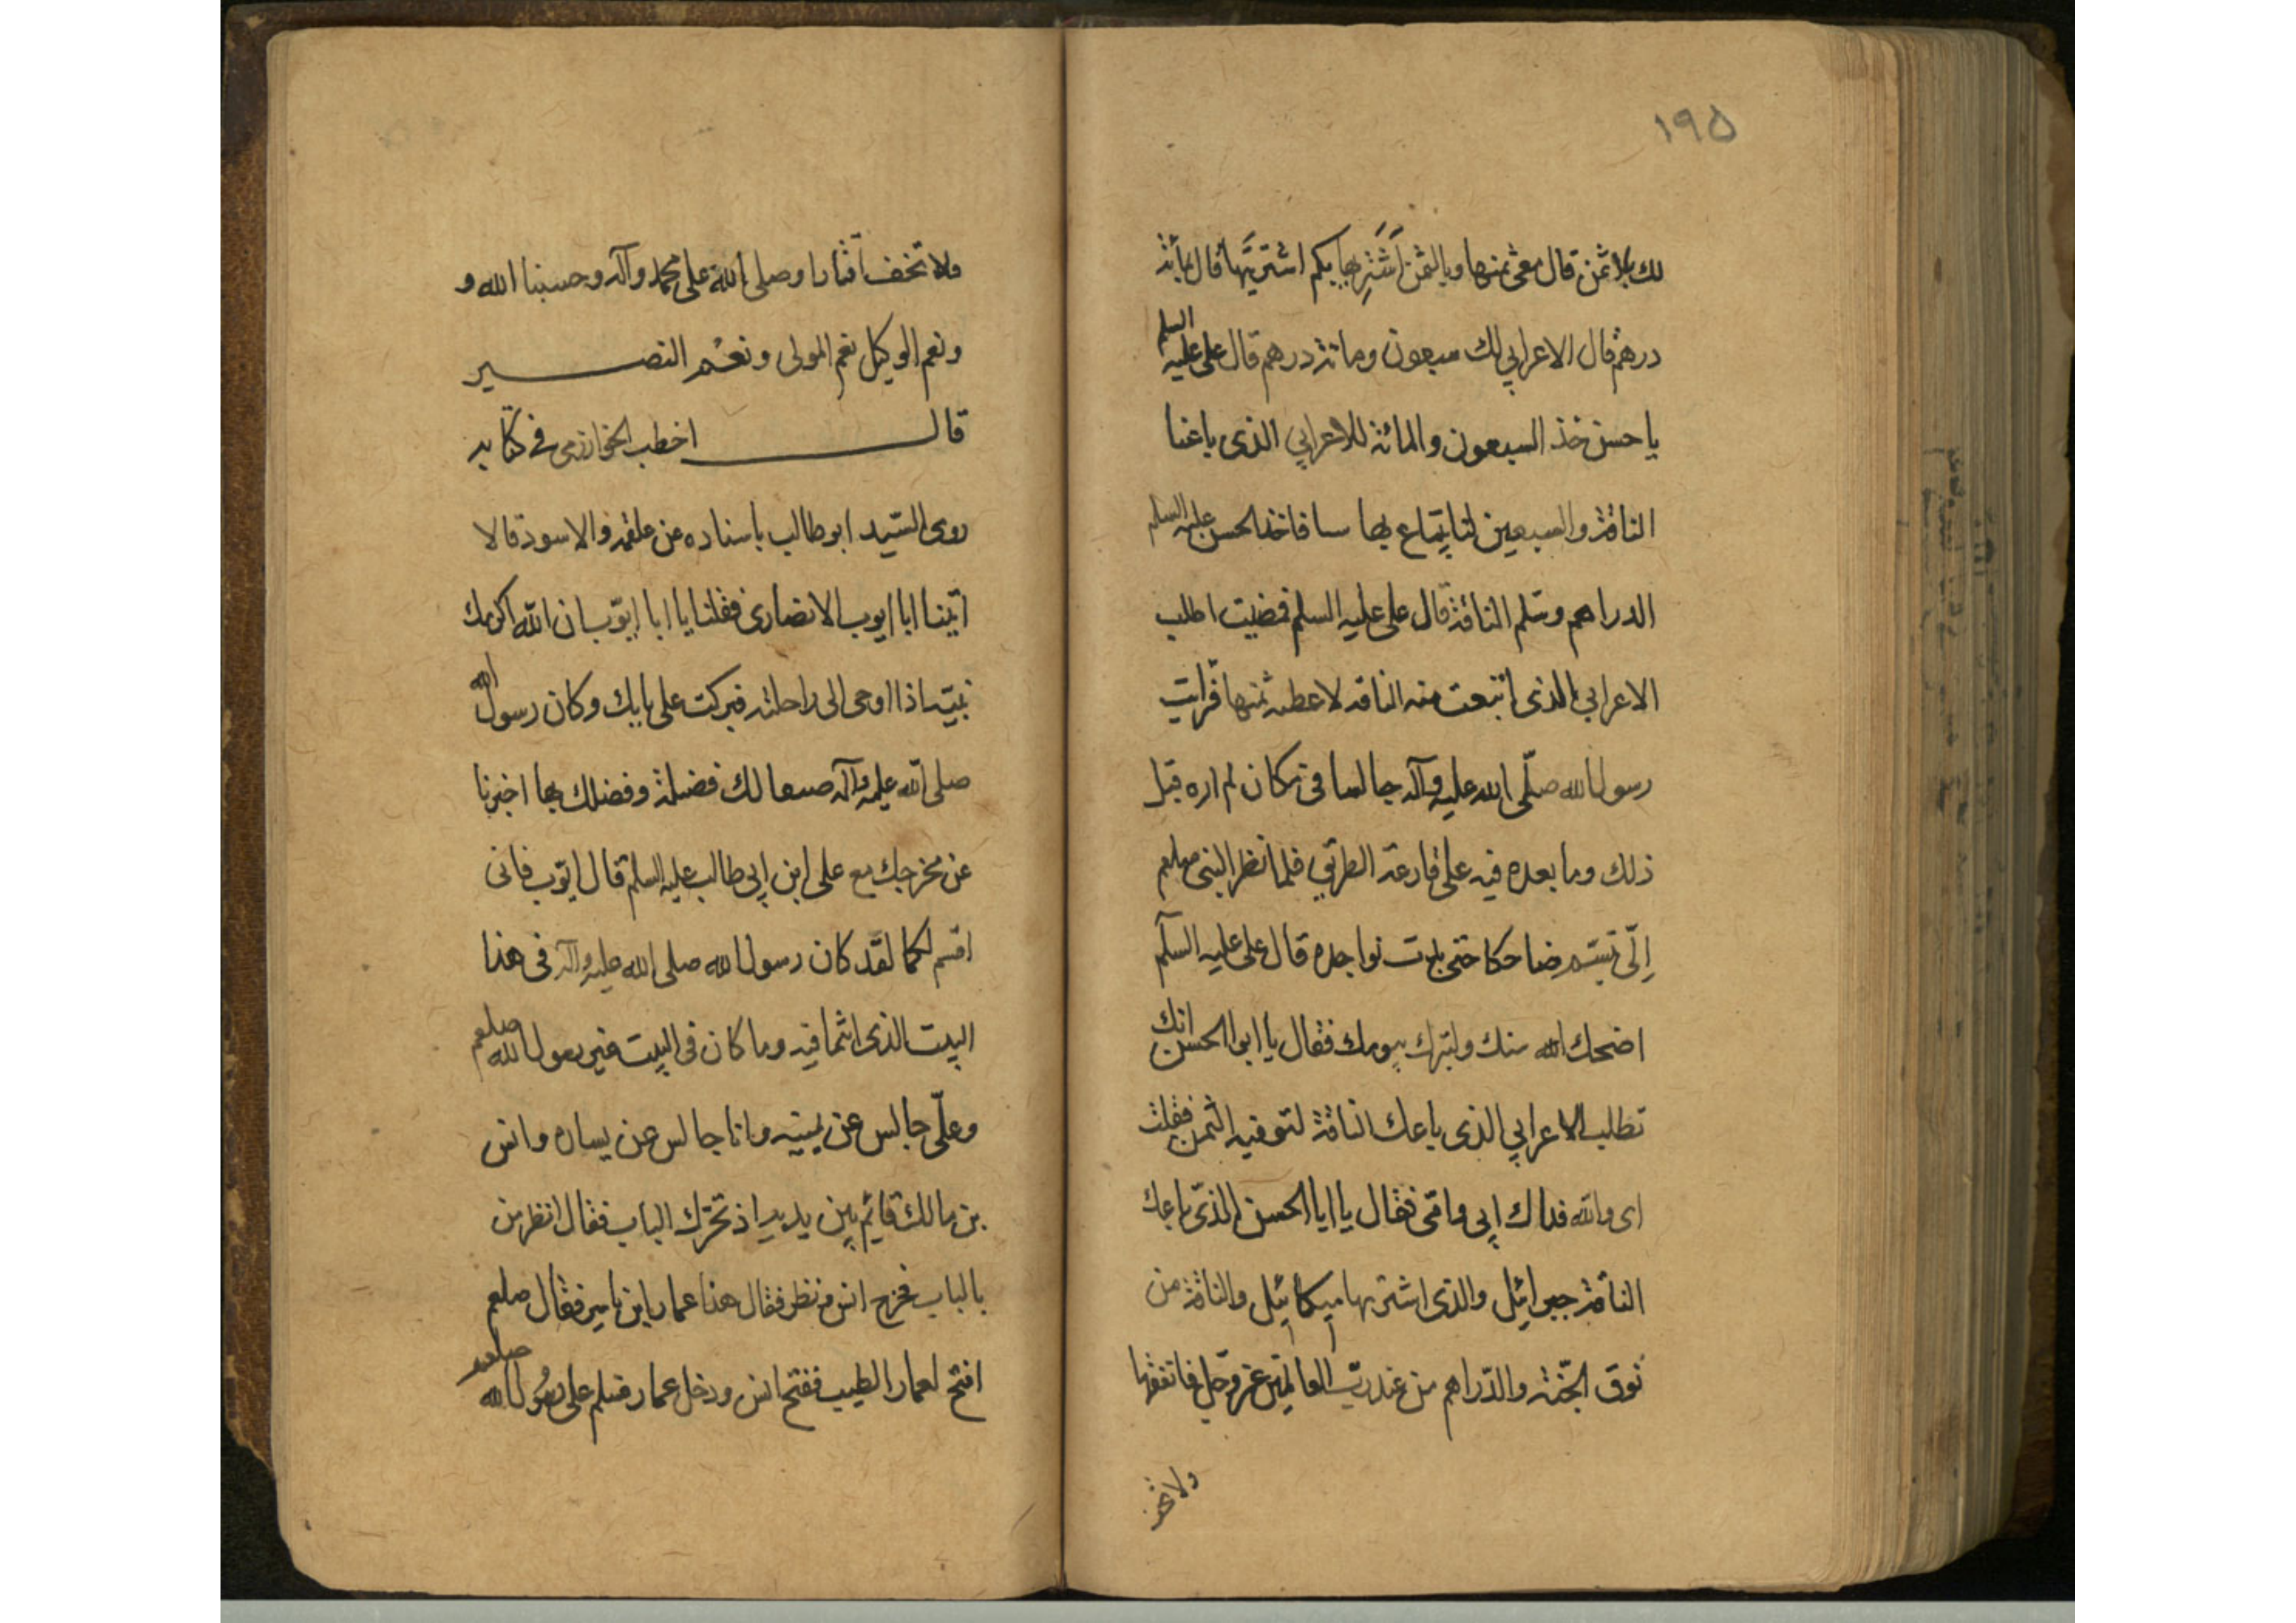 ١٩٥
لك بلا ثمن قال معى ثمنها وبالثمن اَشَتَرِيها بكم اشتريتَها قال بمائة
درهم قال الاعرابي لك سبعون ومائة درهم قال على عليه السلم
يا حسن خذ السبعون والمائة للاعرابي الذى باعنا
الناقة والسبعين لنا يتماع بها سا فاخذ الحسن عليه السلم
الدراهم وسلم الناقة قال على عليه السلم فمضيت اطلب
الاعرابي الذى ابتعت منه الناقه لاعطه ثمنها فرايت
رسول الله صلّى الله عليه وآله جالسا فى مكان لم اره قبل
ذلك وما بعده فيه على قارعة الطريق فلما نظر النبى صلعم
اِلىّ تبسّم ضاحكا حتى بدت نواجده قال على عليه السلم
اضحك الله سنك ولبترك بيومك فقال يا ابو الحسن انك
تطلب الاعرابي الذى باعك الناقة لتوفيه الثمن فقلت
اى والله فداك ابى وامّى فقال يا ابا الحسن الذى باعك
الناقة جبرائيل والذى اشتريها ميكائيل والناقة من
نوق الجنّة والدّراهم من عند ربّ العالمين عز وجل فانفقها
ولا تخف
ولا تخف اقتارا وصلى الله على محمد وآله وحسبنا الله و
ونعم الوكيل نعم المولى ونعم النصير
قال اخطب الخوارزمى فى كتابه
روى السّيد ابو طالب باسناده عن علقمه والاسود قالا
اتينا ابا ايوب الانصارى فقلنا يا ابا ايّوب ان الله اكرمك
نبيّه اذا اوحى الى راحلته فبركت على بابك وكان رسول الله
صلى الله عليه وآله صعا لك فضيلة وفضلك بها اخبرنا
عن مخرجك مع على ابن ابى طالب عليه السلم قال ايّوب فانى
اقسم لكما لقد كان رسول الله صلى الله عليه وآله فى هذا
البيت الذى انتما فيه وما كان فى البيت غير رسول الله صلعم
وعلىّ جالس عن يمينه وانا جالس عن يساره وانس
بن مالك قائم بين يديه اذ تحرّك الباب فقال انظر من
بالباب فخرج انس ونظر فقال هذا عمار ابن ياسر فقال صلعم
افتح لعمار الطيب ففتح انس ودخل عمار فسلم على رسول الله صلعم